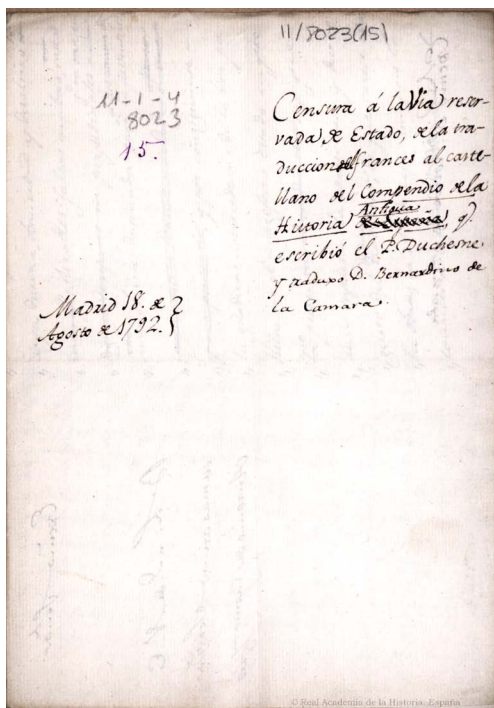 11/8023(15)
11-1-4
8023
15.
Censura á la Via reser-
vada de Estado, de la tra-
duccion del frances al caste-
llano del Compendio de la
Historia Antigua, q.
escribió el P. Duchesne
y traduxo D. Bernardino de
la Camara.
Madrid 18. de
Agosto de 1792.
© Real Academia de la Historia. España